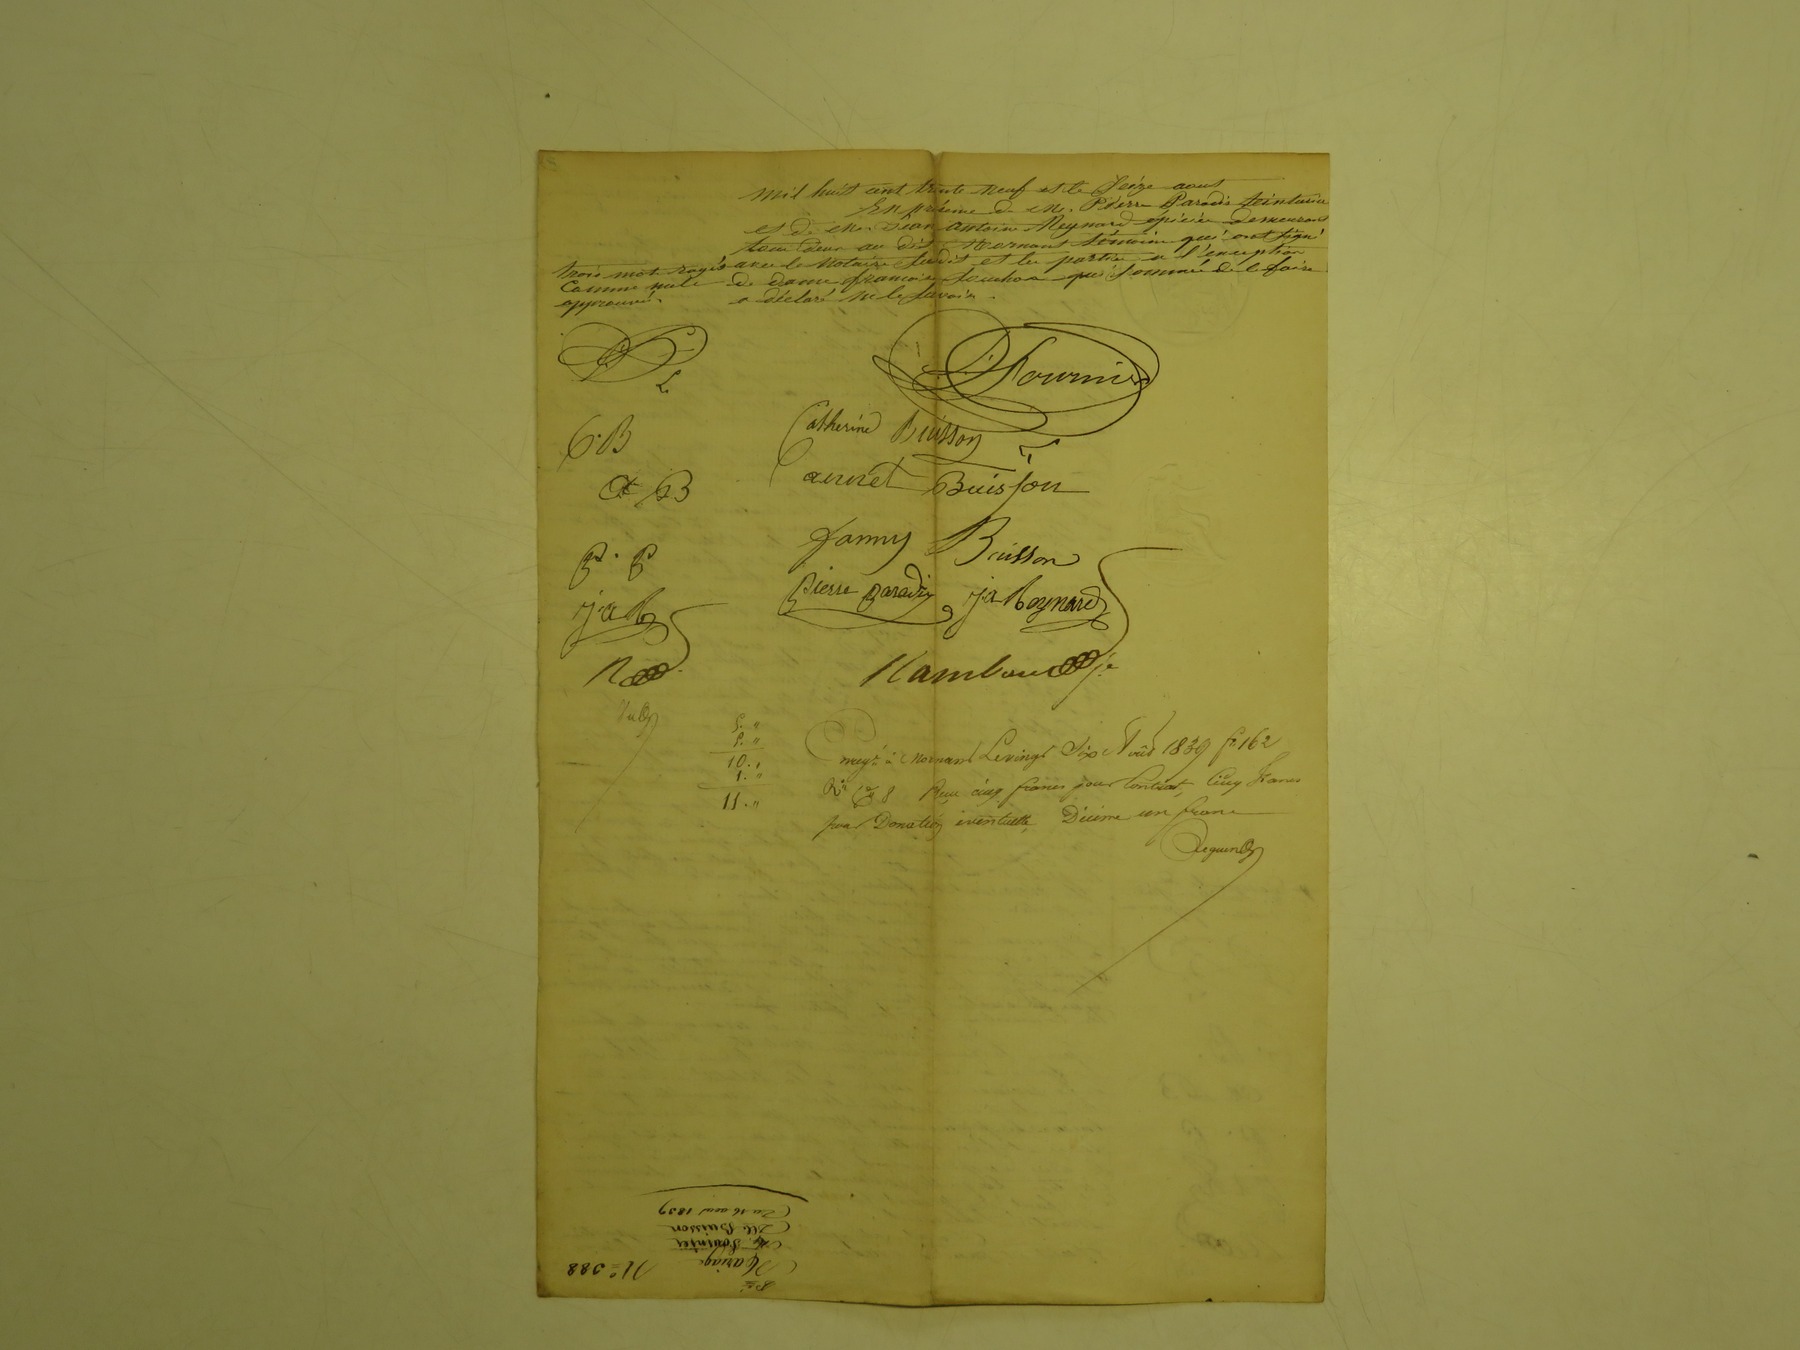 mil huit cent trente neuf et le Seize aout
En présence de M. Pierre Paradis teinturier
et de M. Jean Antoine Reynard épicier demeurant
tous deux au dit Mornant témoins qui ont signé
avec le Notaire susdit et les parties à l'exception
de dame françoise qui sommée de le faire
a déclaré ne le savoir.
trois mot rayés
comme nuls
approuvé.
Fournier
C. B
Catherine Buisson
Buisson
fanny Buisson
P. P
Pierre paradis
j a Reynard
j a R
5. "
5. "
10. "
1. "
11. "
à Mornant Le vingt Six Août 1839 f° 162
R° C 8 Reçu cinq francs pour Contrat, Cinq francs
pour Donation éventuelle, Décime un franc
N° 388
Mariage
M. Fournier
Dlle Buisson
Du 16 aout 1839